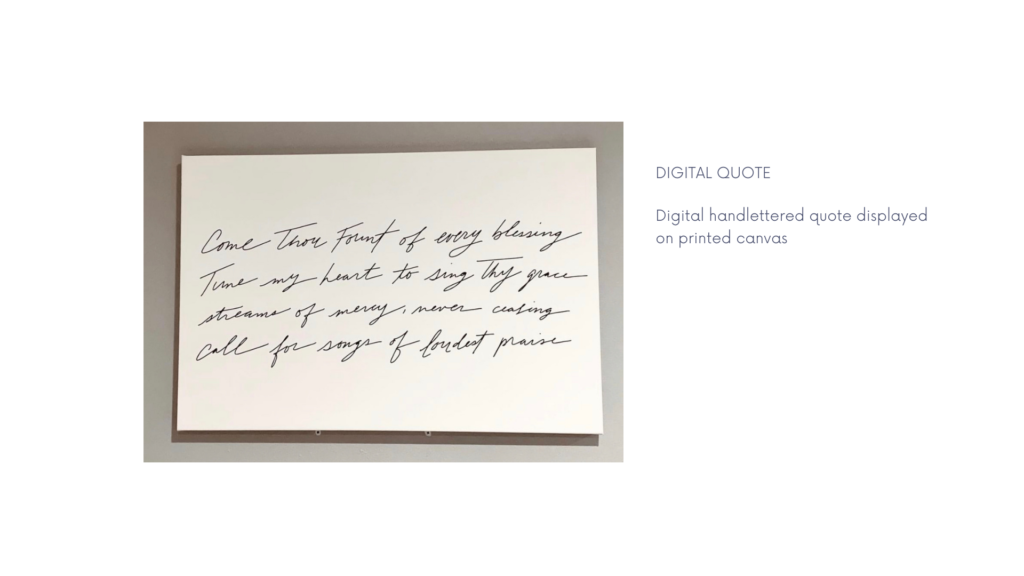 Come Thou Fount of every blessing
Tune my heart to sing Thy grace
streams of mercy, never ceasing
call for songs of loudest praise
DIGITAL QUOTE
Digital handlettered quote displayed
on printed canvas